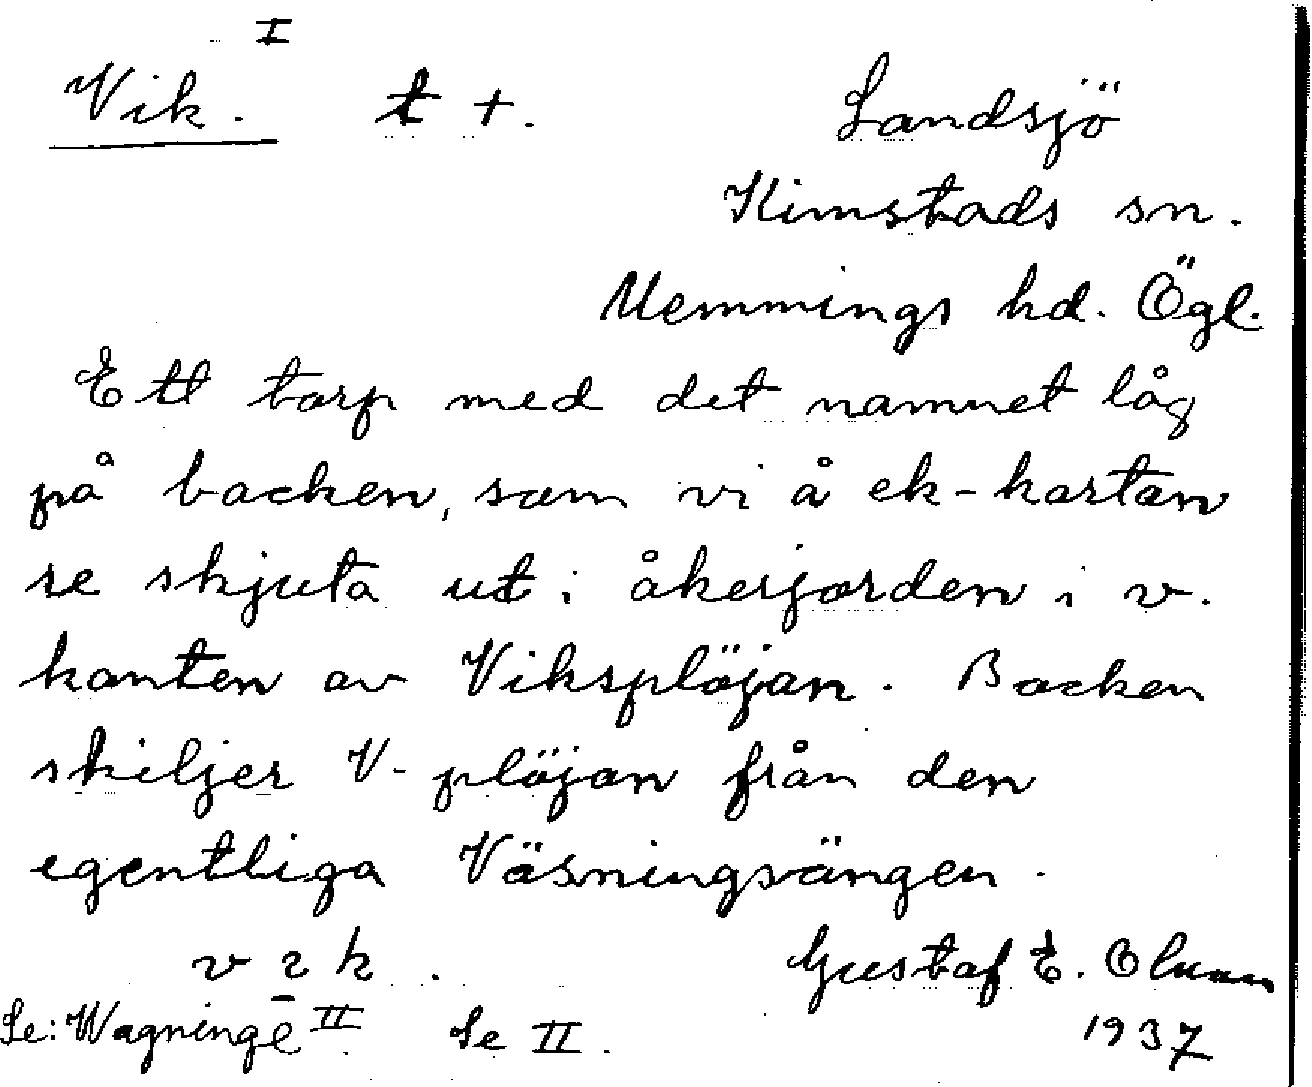 I
Vik. t +. Landsjö
Kimstads sn.
Memmings hd. Ögl.
Ett torp med det namnet låg
på backen, som vi å ek-kartan
se skjuta ut i åkerjorden i v.
kanten av Viksplöjan. Backen
skiljer V-plöjan från den
egentliga Väsningsängen.
Gustaf E. Olsson
Se: Wagninge II Se II. 1937